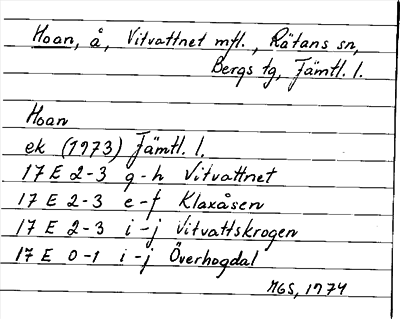 Hoan, å, Vitvattnet mfl., Rätans sn,
Bergs tg, Jämtl. l.
Hoan
ek (1973) Jämtl. l.
17 E 2-3 g-h Vitvattnet
17 E 2-3 e-f Klaxåsen
17 E 2-3 i-j Vitvattskrogen
17 E 0-1 i-j Överhogdal
MGS, 1974